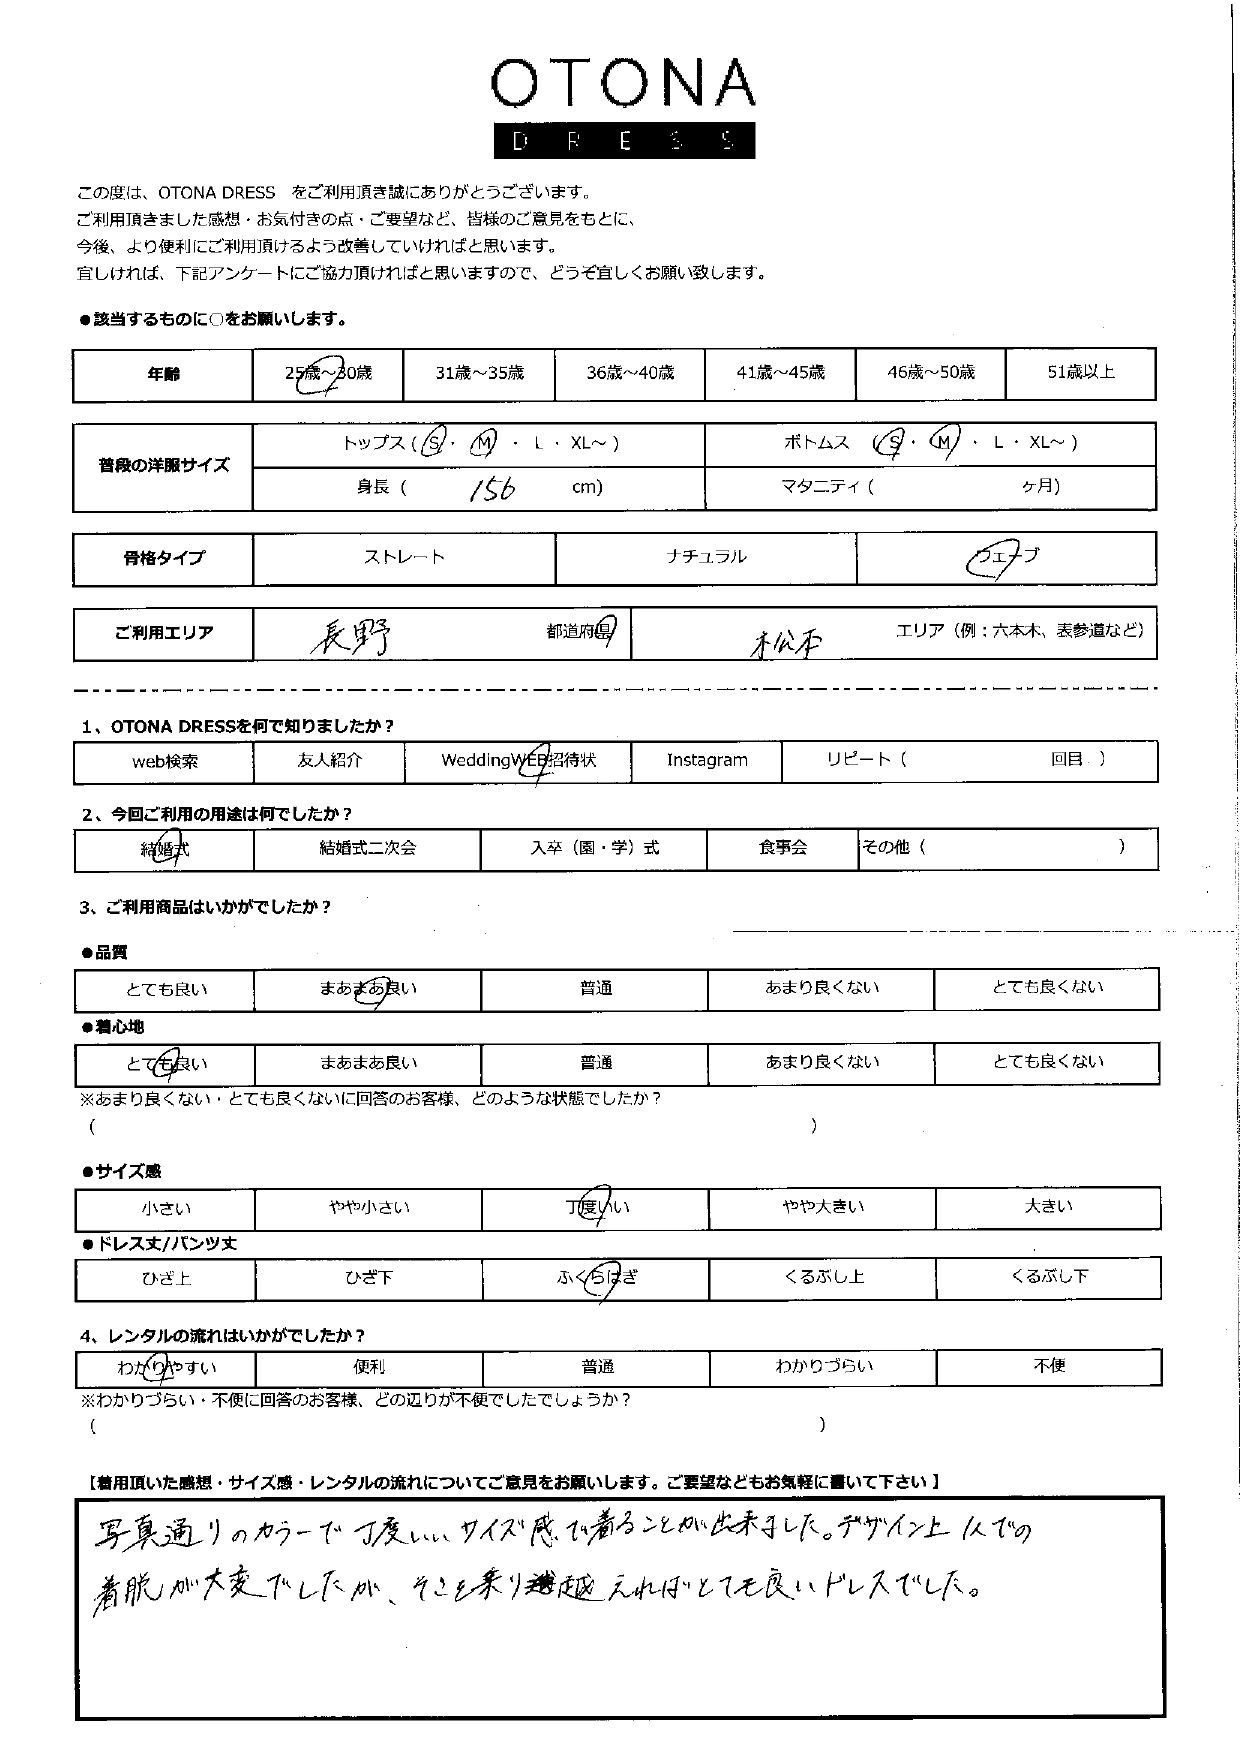 OTONA
DRESS
この度は、OTONA DRESS をご利用頂き誠にありがとうございます。
ご利用頂きました感想・お気付きの点・ご要望など、皆様のご意見をもとに、
今後、より便利にご利用頂けるよう改善していければと思います。
宜しければ、下記アンケートにご協力頂ければと思いますので、どうぞ宜しくお願い致します。
●該当するものに○をお願いします。
年齢 25歳～30歳 31歳～35歳 36歳～40歳 41歳～45歳 46歳～50歳 51歳以上
普段の洋服サイズ トップス ( S ・ M ・ L ・ XL～ ) ボトムス ( S ・ M ・ L ・ XL～ )
身長 ( 156 cm) マタニティ ( ヶ月)
骨格タイプ ストレート ナチュラル ウェーブ
ご利用エリア 長野 都道府県 松本 エリア（例：六本木、表参道など）
1、OTONA DRESSを何で知りましたか？
web検索 友人紹介 WeddingWEB招待状 Instagram リピート（ 回目 ）
2、今回ご利用の用途は何でしたか？
結婚式 結婚式二次会 入卒（園・学）式 食事会 その他（ ）
3、ご利用商品はいかがでしたか？
●品質
とても良い まあまあ良い 普通 あまり良くない とても良くない
●着心地
とても良い まあまあ良い 普通 あまり良くない とても良くない
※あまり良くない・とても良くないに回答のお客様、どのような状態でしたか？
( )
●サイズ感
小さい やや小さい 丁度いい やや大きい 大きい
●ドレス丈/パンツ丈
ひざ上 ひざ下 ふくらはぎ くるぶし上 くるぶし下
4、レンタルの流れはいかがでしたか？
わかりやすい 便利 普通 わかりづらい 不便
※わかりづらい・不便に回答のお客様、どの辺りが不便でしたでしょうか？
( )
【着用頂いた感想・サイズ感・レンタルの流れについてご意見をお願いします。ご要望などもお気軽に書いて下さい】
写真通りのカラーで丁度いいサイズ感で着ることが出来ました。デザイン上1人での
着脱が大変でしたが、そこを乗り越えればとても良いドレスでした。